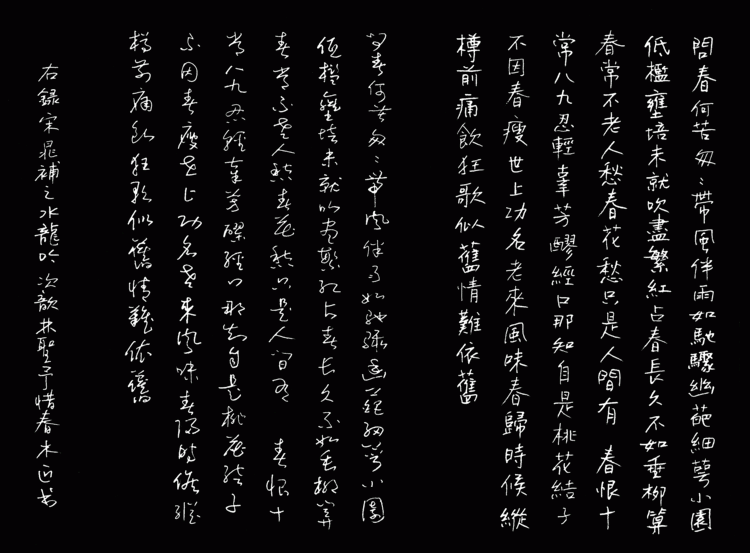 問春何苦匆〻帶風伴雨如馳驟幽葩細萼小園
低檻壅培未就吹盡繁紅占春長久不如垂柳算
春常不老人愁春花愁只是人間有　春恨十
常八九忍輕辜芳醪經口那知自是桃花結子
不因春瘦世上功名老來風味春歸時候縱
樽前痛飲狂歌似舊情難依舊
問春何苦匆〻帶風伴雨如馳驟幽葩細萼小園
低檻壅培未就吹盡繁紅占春長久不如垂柳算
春常不老人愁春花愁只是人間有　春恨十
常八九忍輕辜芳醪經口那知自是桃花結子
不因春瘦世上功名老來風味春歸時候縱
樽前痛飲狂歌似舊情難依舊
右錄宋晁補之水龍吟次韻林聖予惜春木书